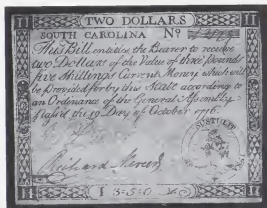 TWO DOLLARS
SOUTH CAROLINA No
This Bill entitles the Bearer to receive
two Dollars of the Value of three Pounds
five Shillings Current Money which will
be provided for by this State according to
an Ordinance of the General Assembly
passed the 19 Day of October 1776.
SUSTULIT
Richard
3=5=0